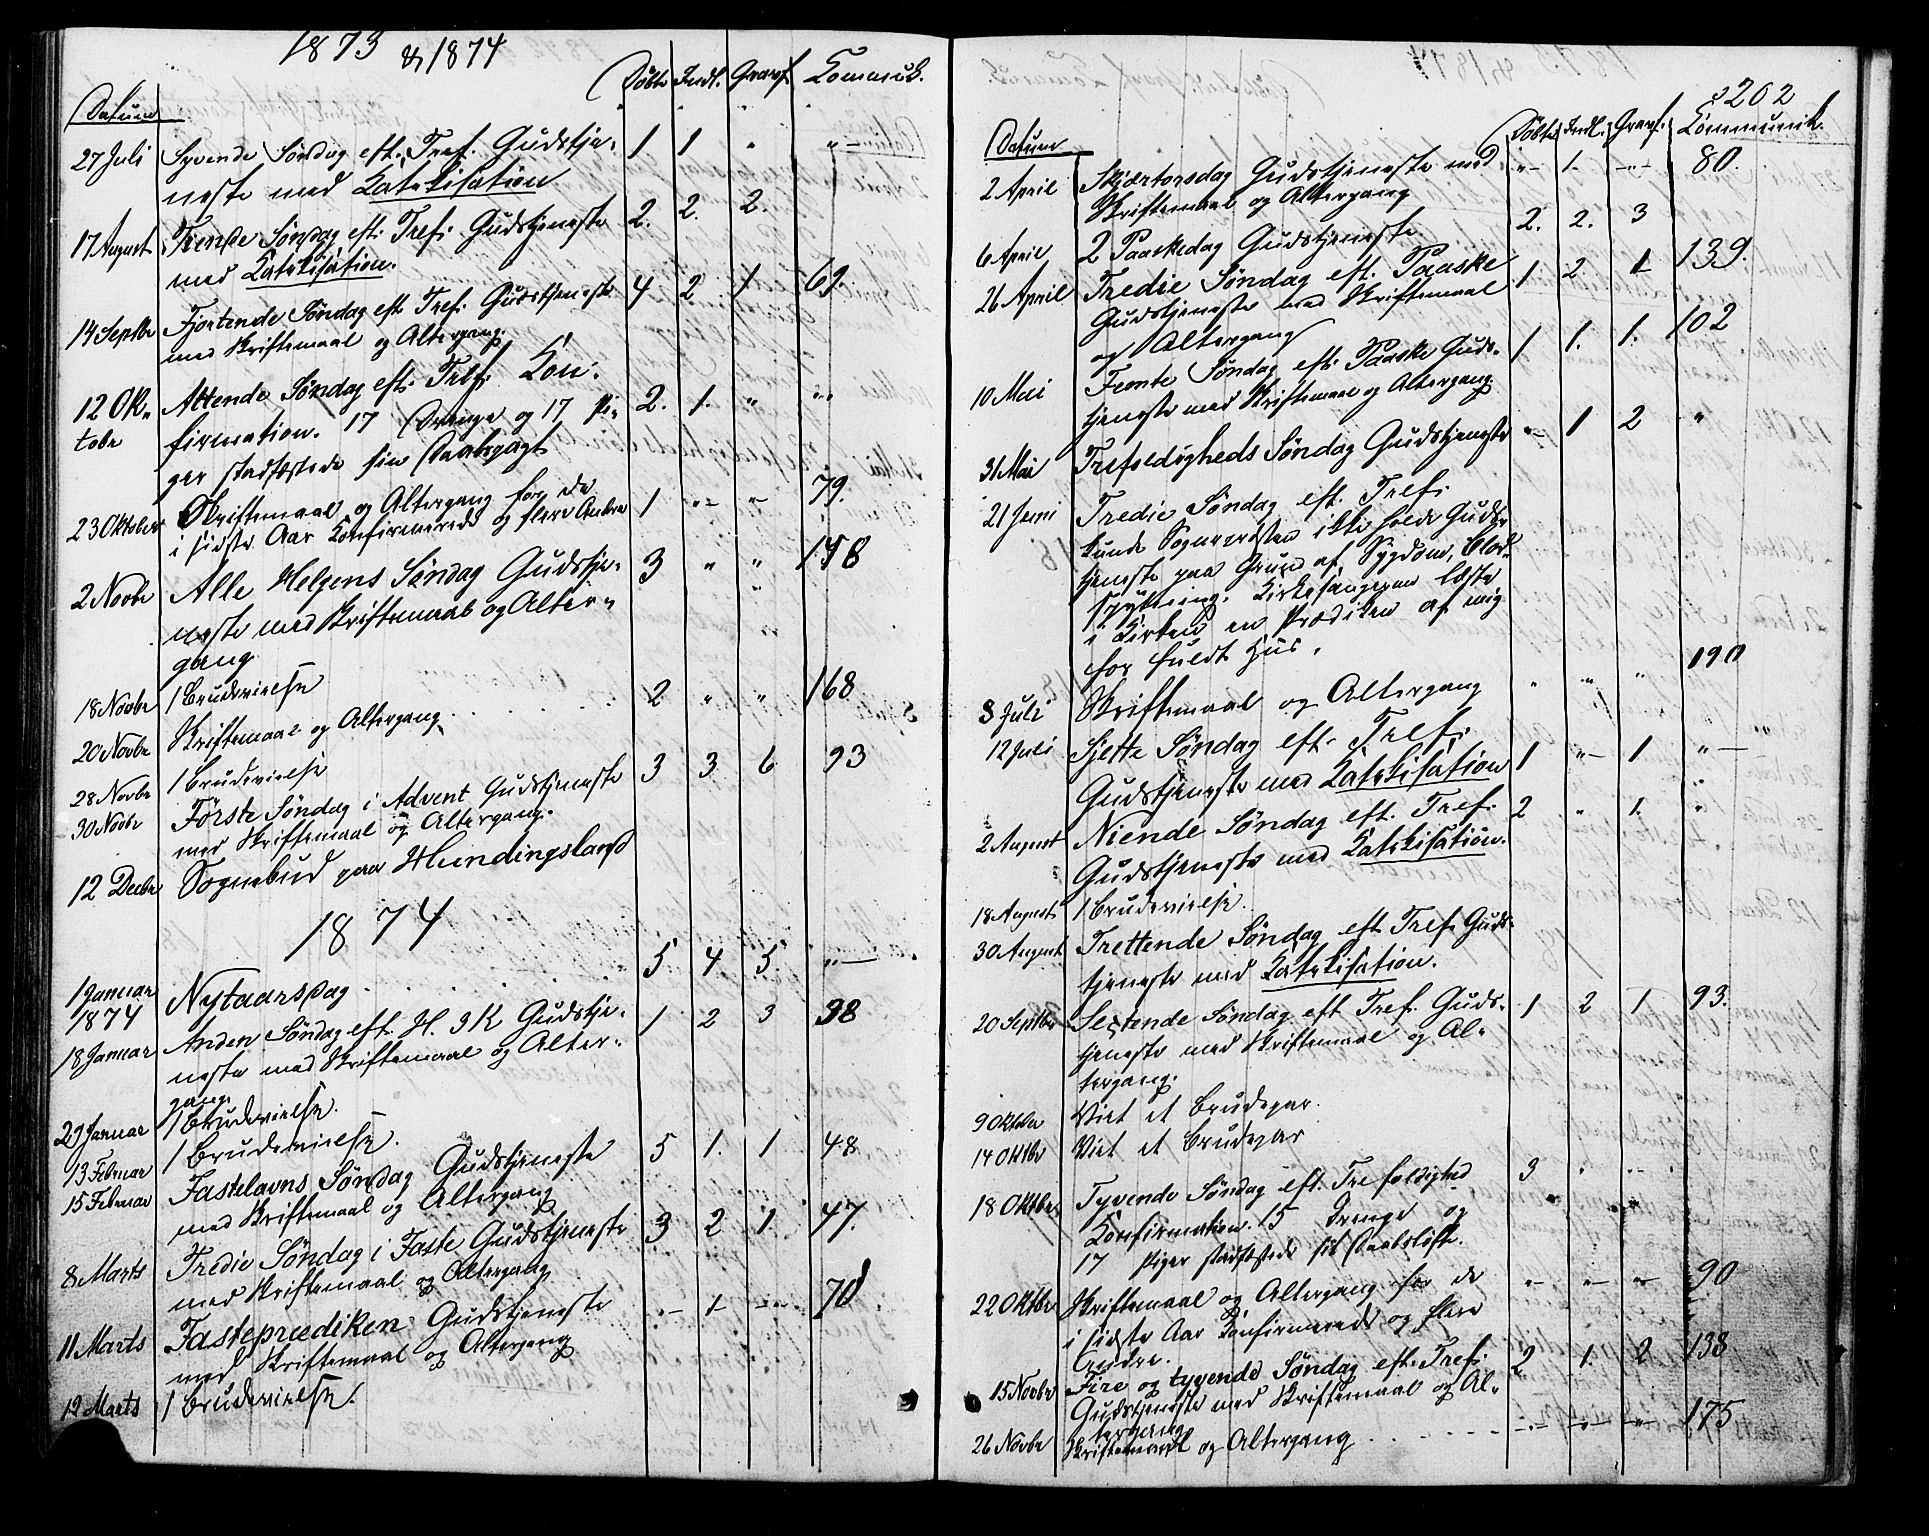 1873 & 1874
Datum Døbte Indl. Gravf. Commuk.
27 Juli Syvende Søndag eft. Tref. Gudstje- 1 1 " "
neste med Katekisation
17 August Tiende Søndag eft. Tref. Gudstjeneste 2. 2. 2.
med Katekisation.
14 Septbr Fjortende Søndag eft. Tref. Gudstjeneste 4 2 1 69.
med Skriftemaal og Altergang.
12 Ok- Attende Søndag eft. Tref. Con-
tobr firmation. 17 Drenge og 17 Pi- 2. 1. " "
ger stadfæstede sin Daabspagt
23 Oktober Skriftemaal og Altergang for de 1 " " 79.
i sidste Aar Konfirmerede og flere Andre
2 Novbr Alle Helgens Søndag Gudstje- 3 " " 158
neste med Skriftemaal og Alter-
gang
18 Novbr 1 Brudevielse
20 Novbr Skriftemaal og Altergang 2 " " 168
28 Novbr 1 Brudevielse
30 Novbr Første Søndag i Advent Gudstjeneste 3 3 6 93
med Skriftemaal og Altergang.
12 Decbr Sognebud paa Hundingsland
1874
1 Januar
1874 Nytaarsdag 5 4 5 "
18 Januar Anden Søndag eft. H. 3 K Gudstje- 1 2 3 38
neste med Skriftemaal og Alter-
gang.
29 Januar 1 Brudevielse.
13 Februar 1 Brudevielse.
15 Februar Fastelavns Søndag Gudstjeneste 5 1. 1 48
med Skriftemaal og Altergang
8 Marts Tredie Søndag i Faste Gudstjeneste 3 2 1. 47.
med Skriftemaal og Altergang
11 Marts Fasteprædiken Gudstjeneste " 1 " 70
med Skriftemaal og Altergang
12 Marts 1 Brudevielse.
202
Datum Døbte Indl. Gravf. Kommunik.
2 April Skjærtorsdag Gudstjeneste med " 1. " 80.
Skriftemaal og Altergang
6 April 2 Paaskedag Gudstjeneste. 2. 2. 3
26 April Tredie Søndag eft. Paaske 1 2 1 139.
Gudstjeneste med Skriftemaal
og Altergang
10 Mai Femte Søndag eft. Paaske Guds- 1 1. 1. 102
tjeneste med Skriftemaal og Altergang.
31 Mai Trefoldigheds Søndag Gudstjeneste " 1 2 "
21 Juni Tredie Søndag eft. Tref.
kunde Sognepræsten ikke holde Guds-
tjeneste paa Grund af Sygdom, Blod-
spytning. Kirkesangeren læste
i Kirken en Prædiken af mig
for fuldt Hus.
3 Juli Skriftemaal og Altergang " " " 190
12 Juli Sjette Søndag eft. Tref.
Gudstjeneste med Katekisation 1 " 1 "
2 August Niende Søndag eft. Tref. 2 " 1. "
Gudstjeneste med Katekisation.
18 August 1 Brudevielse.
30 August Trettende Søndag eft. Tref. Guds-
tjeneste med Katekisation.
20 Septbr Sextende Søndag eft Tref. Guds- 1 2 1. 93.
tjeneste med Skriftemaal og Al-
tergang.
9 Oktobr Viet et Brudepar.
14 Oktbr Viet et Brudepar
18 Oktbr Tyvende Søndag eft. Trefoldighed 3 " "
Konfirmation. 15 Drenge og
17 Piger stadfæstede sit Daabsløfte.
22 Oktbr Skriftemaal og Altergang for de " " " 90
i sidste Aar Konfirmerede og flere
Andre.
15 Novbr Fire og tyvende Søndag eft. Tref. 2 1. 2 138
Gudstjeneste med Skriftemaal og Al-
tergang
26 Novbr Skriftemaal og Altergang " " " 175